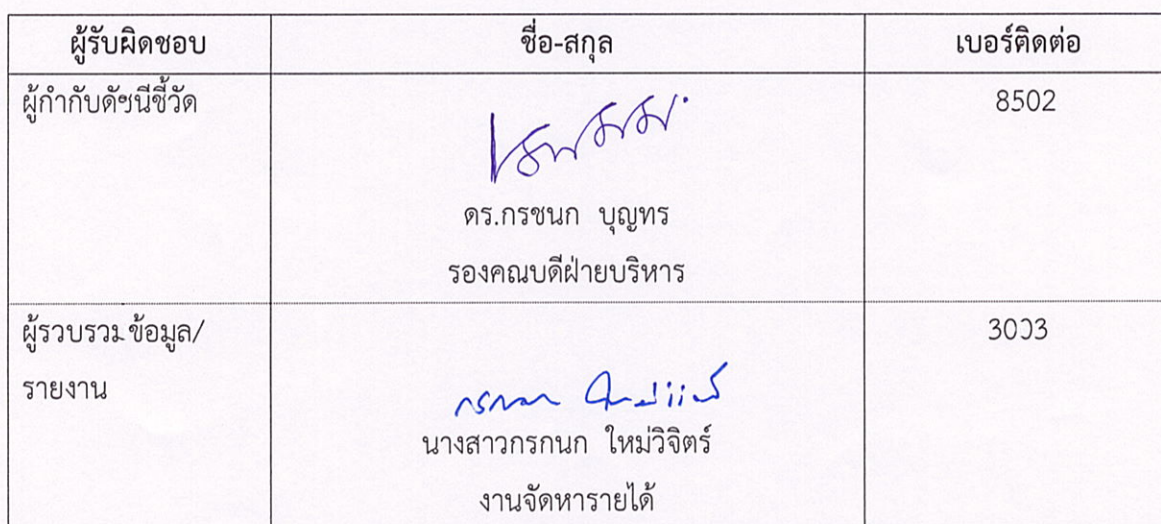 ผู้รับผิดชอบ ชื่อ-สกุล เบอร์ติดต่อ
ผู้กำกับดัชนีชี้วัด 8502
ดร.กรชนก บุญทร
รองคณบดีฝ่ายบริหาร
ผู้รวบรวมข้อมูล/ 3003
รายงาน
นางสาวกรกนก ใหม่วิจิตร์
งานจัดหารายได้